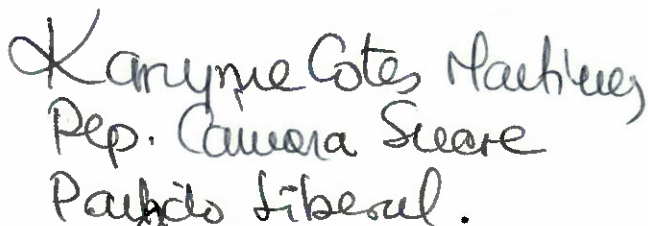 Karyme Cotes Martinez
Rep. Camara Sucre
Partido Liberal.